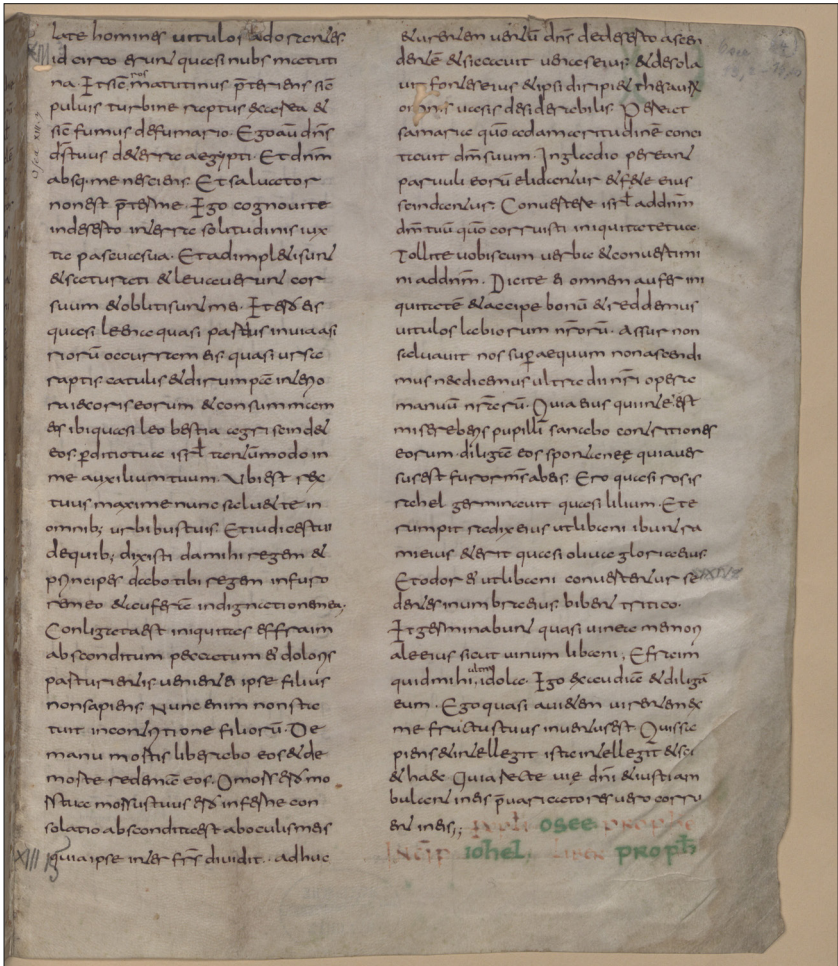 late homines uitulos adorantes
id circo erunt quasi nubs matuti
na. Et sic̄ ros matutinus p̄teriens sic̄
puluis turbine raptus ex area et
sic̄ fumus de fumario. Ego aū dn̄s
ds̄ tuus de terra aegypti. Et dnm̄
absq; me nescieris. Et saluator
non est p̄ter me. Ego cognoui te
in deserto in terra solitudinis iux
ta pascua sua. Et adimpleti sunt
et saturati et leuauerunt cor
suum et obliti sunt mei. Et ero eis
quasi leaena quasi pardus in uia assi
riorū occurram eis quasi ursa
raptis catulis et dirumpā interio
ra iecoris eorum et consummam
eos ibi quasi leo bestia agri scindet
eos. p̱ditio tua isrl̄ tantūmodo in
me auxilium tuum. Ubi est rex
tuus maxime nunc saluet te in
omnib; urbibus tuis. Et iudices tui
de quib; dixisti da mihi regem et
principes dabo tibi regem in furo
re meo et auferā in indignatione mea.
Conligata est iniquitas effraim
absconditum peccatum eius dolores
parturientis uenient ei ipse filius
non sapiens. Nunc enim non sta
bit in contritione filiorū. De
manu mortis liberabo eos et de
morte redimā eos. O mors ero mo
rs tua morsus tuus ero inferne con
solatio abscondita est ab oculis meis
XIII quia ipse inter frs̄ diuidit. adhuc
et uentum urentū dns̄ de deserto ascen
dentē et siccauit uenas eius et desola
uit fontes eius et ipse diripiet thesaurū
omnis uasis desiderabilis. Pereat
samaria qūo ad amaritudinē conci
tauit dm̄ suum. In gladio pereant
paruuli eorū elidantur et fete eius
scindantur. Conuertere isrl̄ ad dnm̄
dm̄ tuū qūo corruisti iniquitate tua.
Tollite uobiscum uerba et conuertimi
ni ad dnm̄. Dicite ei omnem aufer ini
quitatē et accipe bonū et reddemus
uitulos labiorum nr̄orū. Assur non
saluauit nos sup̱ aequum non ascendi
mus nec dicemus ultra dii nr̄i opera
manuū nr̄arū. Quia eius qui in te est
misereberis pupilli sanabo contritiones
eorum. diligā eos spontanee quia auer
sus est furor ms̄ ab eis. Ero quasi rosis
rahel germinauit quasi lilium. Et e
rumpit radix eius ut libani ibunt ra
mi eius et erit quasi oliua gloria eius.
Et odor eius ut libani conuertentur se
dentes in umbra eius. bibent tritico.
Et germinabunt quasi uinea memori
ale eius sicut uinum libani; Efraim
quid mihi ultra idola. Ego exaudiā et diligā
eum. Ego quasi auietem uirentem ex
me fructus tuus inuentus est. Quis sa
piens et intellegit ista intellegit et sci
et haec. Quia recte uie dn̄i et iusti am
bulant in eis p̄uaricatores uero corru
ent in eis;; Expl̄ osee propheta
INCIP iohel, liber proph̄